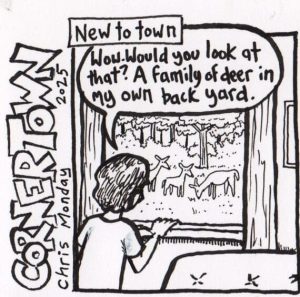 CORNERTOWN
Chris Monday 2025
New to town
Wow. Would you look at
that? A family of deer in
my own back yard.